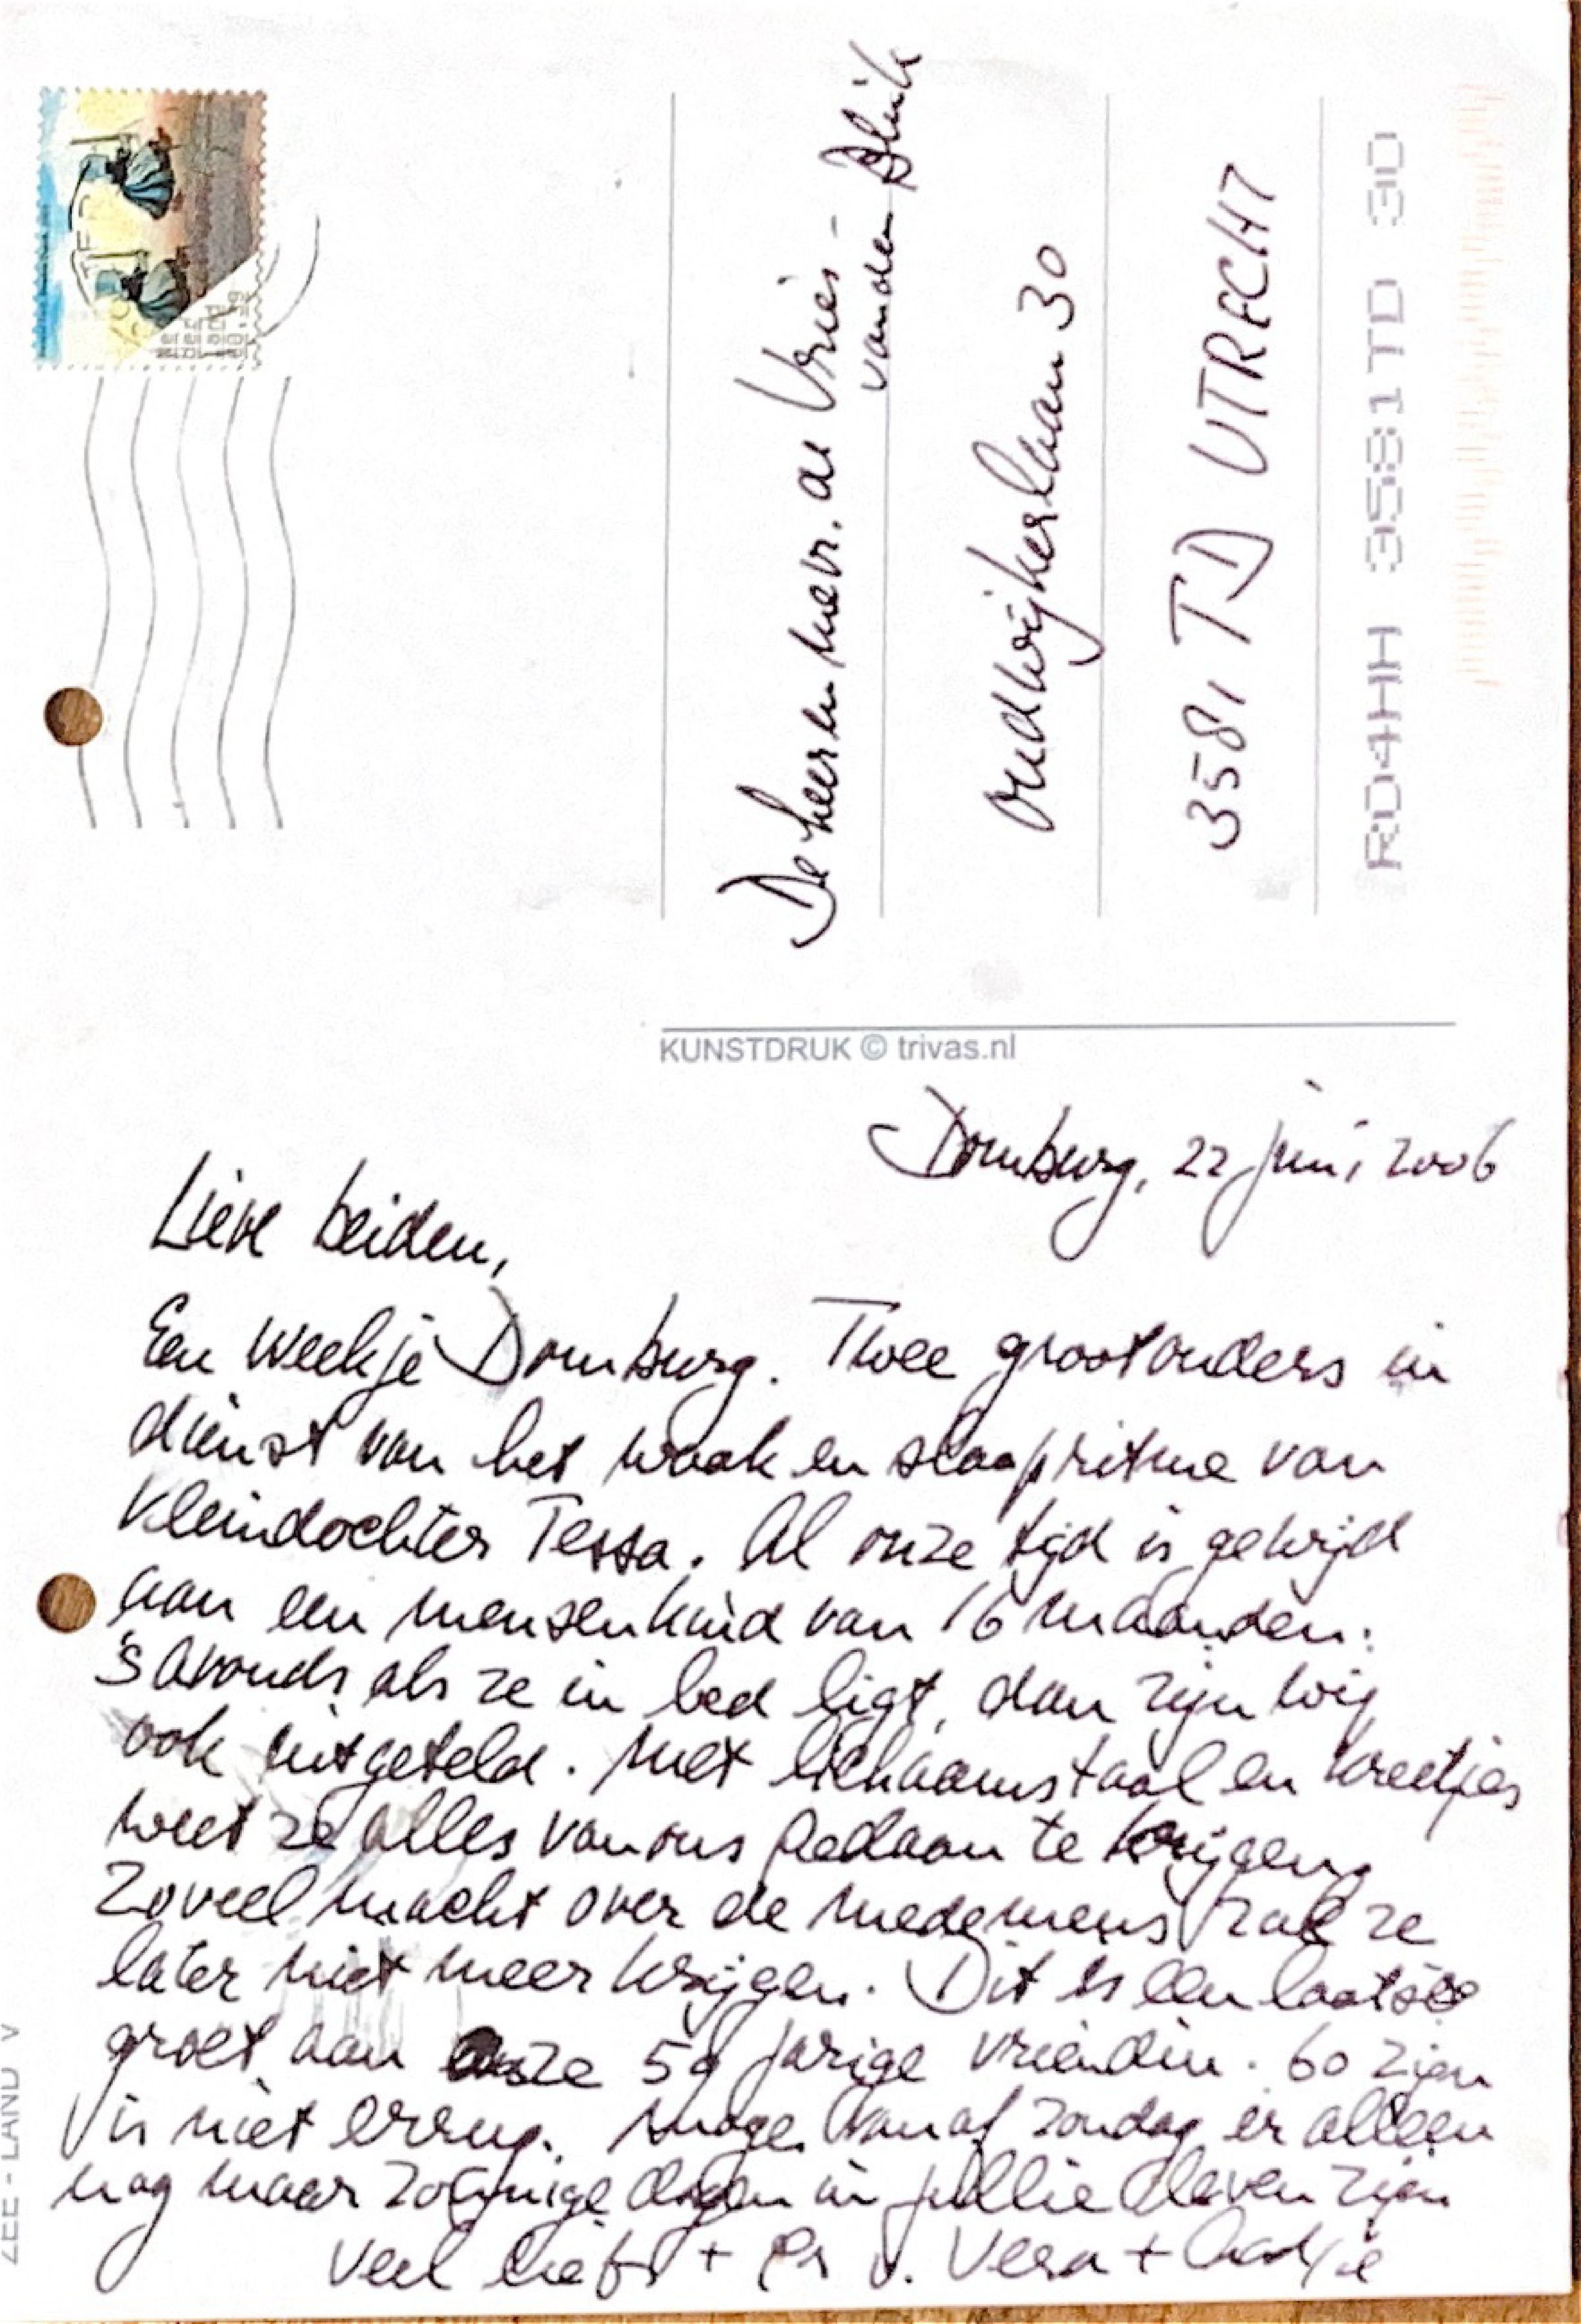 De heer en mevr. de Vries -
van den Blink
Oudwijkerlaan 30
3581 TD UTRECHT
R04HH 3581TD 30
KUNSTDRUK © trivas.nl
Domburg, 22 juni 2006
Lieve beiden,
Een weekje Domburg. Twee grootouders in
dienst van het waak en slaapritme van
kleindochter Tessa. Al onze tijd is gewijd
aan een mensenkind van 16 maanden.
's Avonds als ze in bed ligt, dan zijn wij
ook uitgeteld. Met lichaamstaal en kreetjes
weet ze alles van ons gedaan te krijgen.
Zoveel macht over de medemens zal ze
later niet meer krijgen. Dit is een laatste
groet aan onze 59 jarige vriendin. 60 zijn
is niet errug. Moge vanaf zondag er alleen
nog maar zonnige dagen in jullie leven zijn
Veel liefs + v. Vera +
ZEE-LAND V